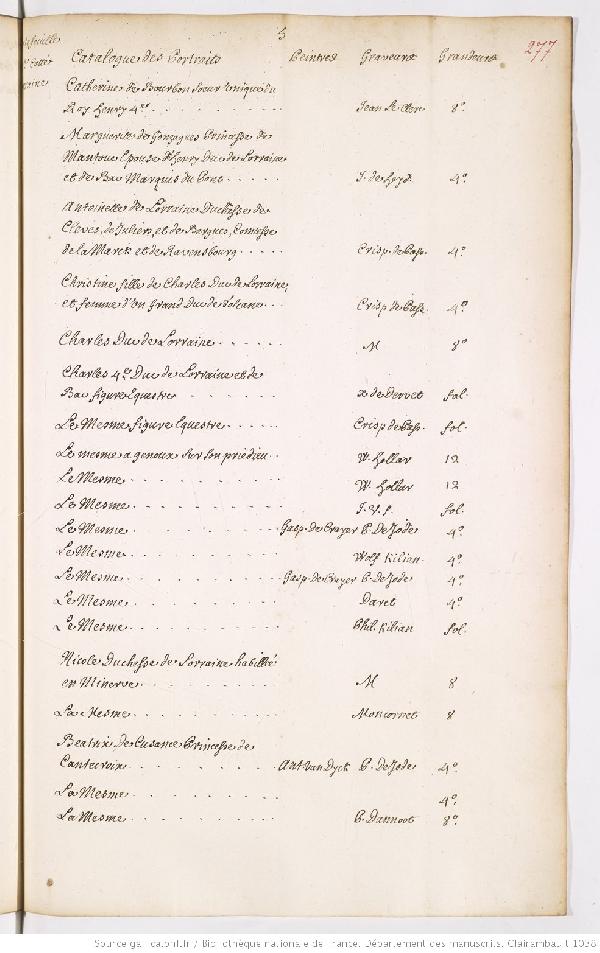 5
277
Catalogue des Portraits Peintres Graveurs Grandeurs
Catherine de Bourbon Soeur Unique du
Roy henry 4e. . . . . . . . . . Jean le Clerc 8o.
Marguerite de Gonzagues Princesse de
Mantoue Epouse d'Henry Duc de Lorraine
et de Bar Marquis du Pont . . . . . J. de 4o.
Antoinette de Lorraine Duchesse de
Cleves, de Juliers, et de Bergues, Comtesse
de la Marck et de Ravensbourg . . . . Crisp. de Pass. 4o.
Christine fille de Charles Duc de Lorraine,
et femme d'un Grand Duc de Toscane . . . Crisp de Pass. 4o.
Charles Duc de Lorraine . . . . . . M 8o
Charles 4e. Duc de Lorraine et de
Bar figure Equestre . . . . . . . de Dervet fol.
Le Mesme figure Equestre . . . . . Crisp de Pass. fol.
Le mesme a genoux sur son priedieu . . W. Hollar 12
Le Mesme . . . . . . . . . . W. Hollar 12
Le Mesme . . . . . . . . . . fol.
Le Mesme . . . . . . . . . . Gasp. de Crayer P. De Jode 4o.
Le Mesme . . . . . . . . . . Wolf. Kilian 4o.
Le Mesme . . . . . . . . . . Gasp. de Crayer P. De Jode 4o.
Le Mesme . . . . . . . . . . Daret 4o.
Le Mesme . . . . . . . . . . Phil. Kilian fol.
Nicole Duchesse de Lorraine habillée
en Minerve . . . . . . . . . . M 8
La Mesme . . . . . . . . . . Moncornet 8
Beatrix de Cusance Princesse de
Cantecroix . . . . . . . . . . Ant. Van Dyck P. De Jode 4o.
La Mesme . . . . . . . . . . 4o.
La Mesme . . . . . . . . . . P. Dannoot 8o.
Source gallica.bnf.fr / Bibliothèque nationale de France. Département des manuscrits. Clairambault 1038